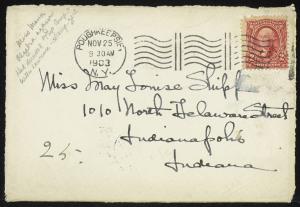 POUGHKEEPSIE
NOV 25
9 30 AM
1903
N.Y.
Miss May Louise Shipp
1010 North Delaware Street
Indianapolis
Indiana
25-